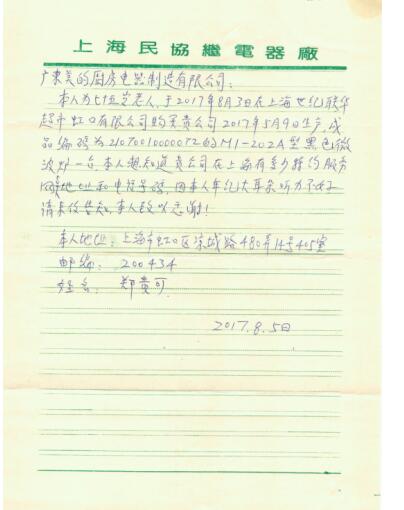 上海民協繼電器廠
广东美的厨房电器制造有限公司：
本人为七十五岁老人，于2017年8月3日在上海世纪联华
超市虹口有限公司购买贵公司2017年5月9日生产，成
品编码为 M1-202A型黑色微
波炉一台，本人想知道贵公司在上海有多少特约服务
网点地址和电话号码，因本人年纪大耳朵听力不好
请来信告知，本人致以感谢！
本人地址：上海市虹口区 城路480弄14号405室
邮编：200434
姓名：郑贵可
2017.8.5日